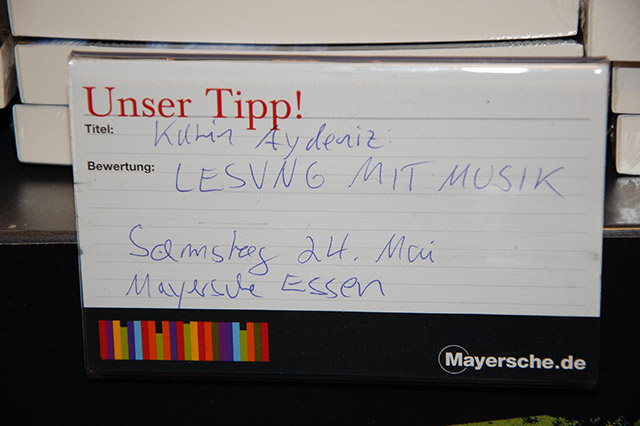 Unser Tipp!
Titel: Katrin Aydeniz
Bewertung: LESUNG MIT MUSIK
Samstag 24. Mai
Mayersche Essen
Mayersche.de